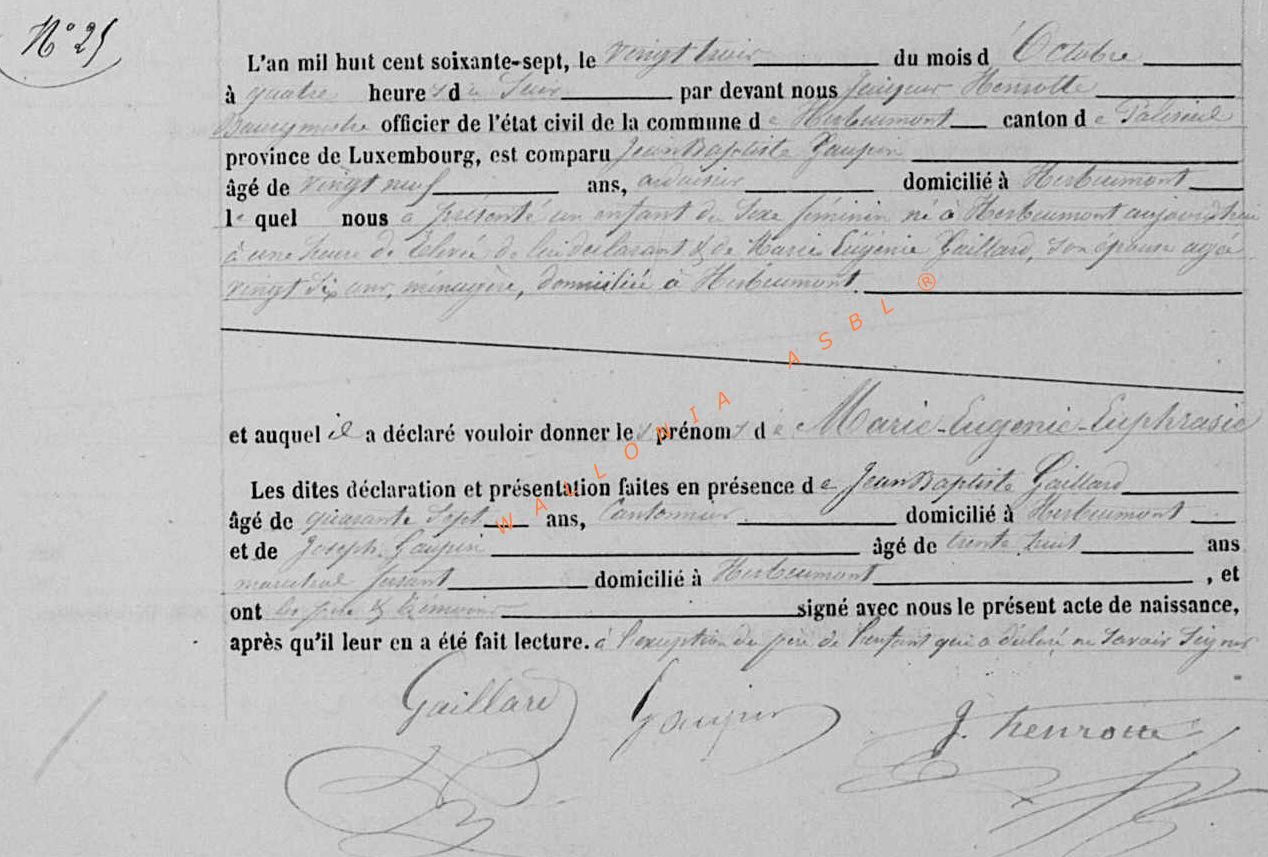 N° 25
L'an mil huit cent soixante-sept, le vingt trois du mois d'Octobre
à quatre heures du Soir par devant nous Jacques Henrotte
Bourgmestre officier de l'état civil de la commune de Herbeumont canton de Paliseul
province de Luxembourg, est comparu Jean Baptiste Gaupin
âgé de vingt neuf ans, ardoisier domicilié à Herbeumont
lequel nous a présenté un enfant du sexe féminin né à Herbeumont aujourd'hui
à une heure de de lui déclarant & de Marie Eugénie Gaillard, son épouse agée
vingt six ans, ménagère, domiciliée à Herbeumont.
et auquel il a déclaré vouloir donner les prénoms de Marie-Eugenie-Euphrasie
Les dites déclaration et présentation faites en présence de Jean Baptiste Gaillard
âgé de quarante sept ans, Cantonnier domicilié à Herbeumont
et de Joseph Gaupin âgé de trente huit ans
marechal ferrant domicilié à Herbeumont, et
ont les père & témoins signé avec nous le présent acte de naissance,
après qu'il leur en a été fait lecture. à l'exception du père de l'enfant qui a déclaré ne savoir signer
Gaillard Gaupin J. henrotte
WALLONIA ASBL ®